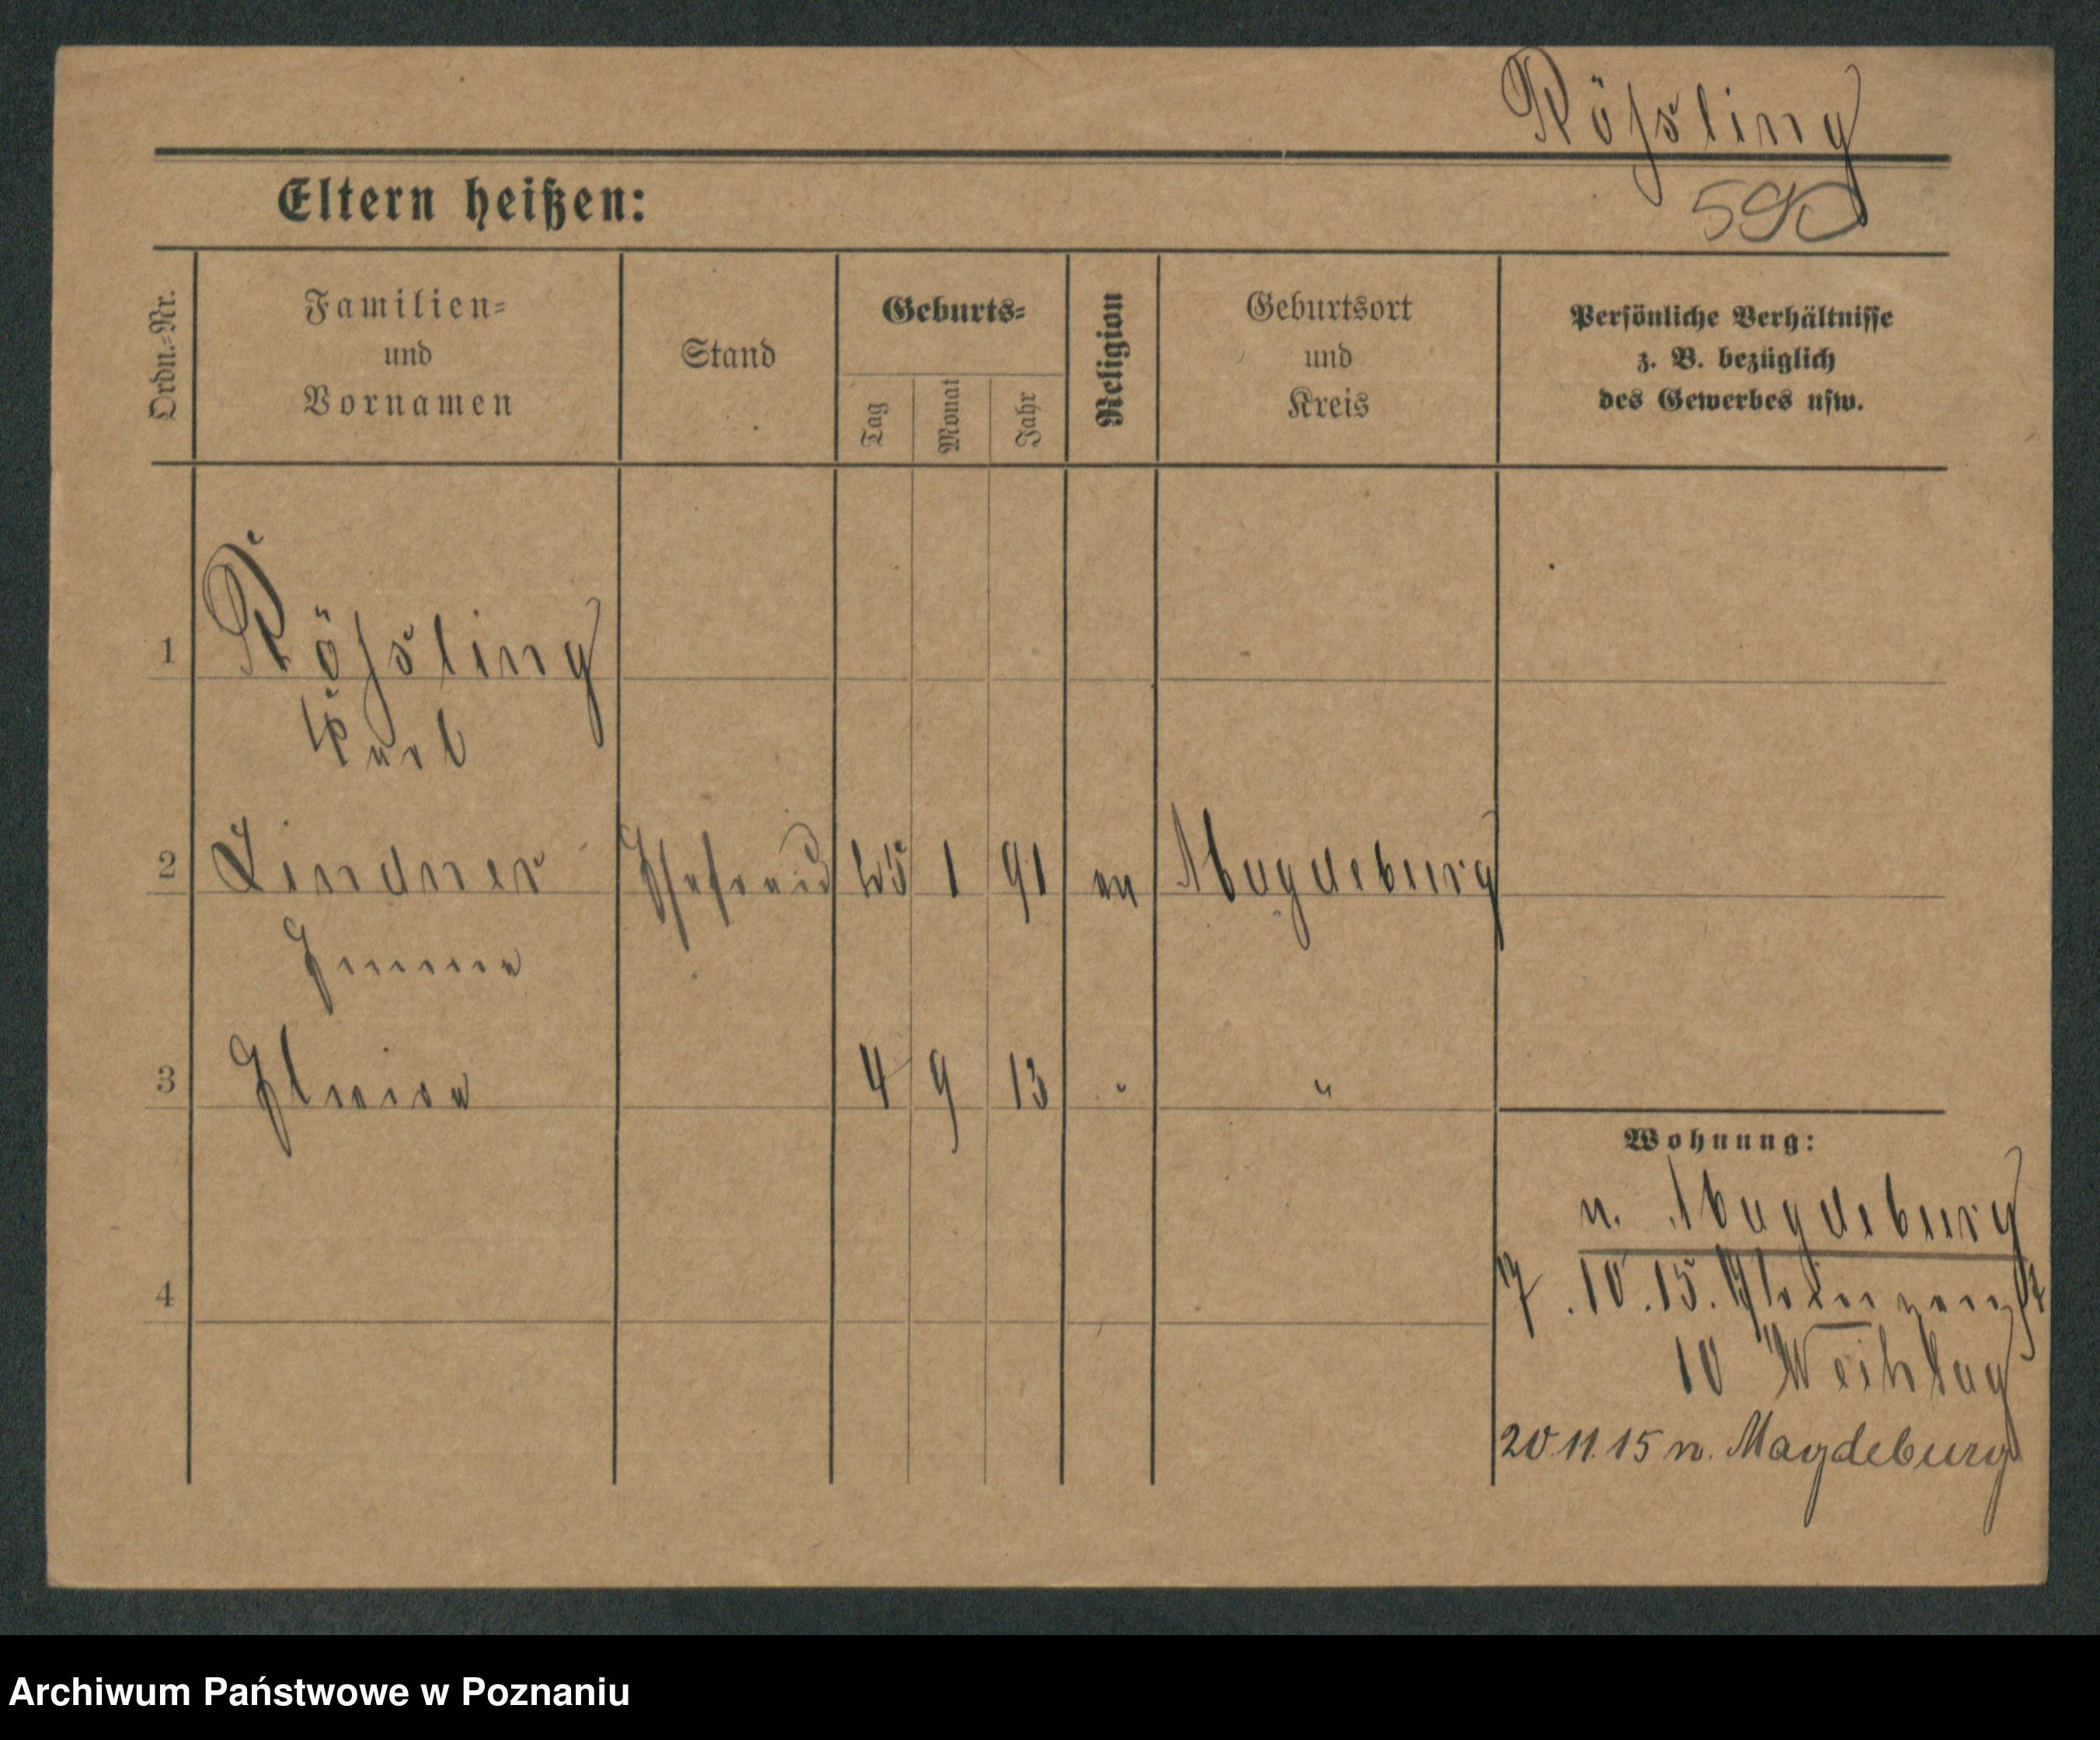 Rößling
590
Eltern heißen:
Ordn.-Nr.
Familien-
und
Vornamen
Stand
Geburts-
Tag
Monat
Jahr
Religion
Geburtsort
und
Kreis
Persönliche Verhältnisse
z. B. bezüglich
des Gewerbes usw.
1 Rößling
Karl
2 Lindner Ehefrau 25 1 91 ev Magdeburg
Emma
3 4 9 13 " "
Wohnung:
n. Magdeburg
4
7.10.15.
10
20.11.15 n. Magdeburg
Archiwum Państwowe w Poznaniu